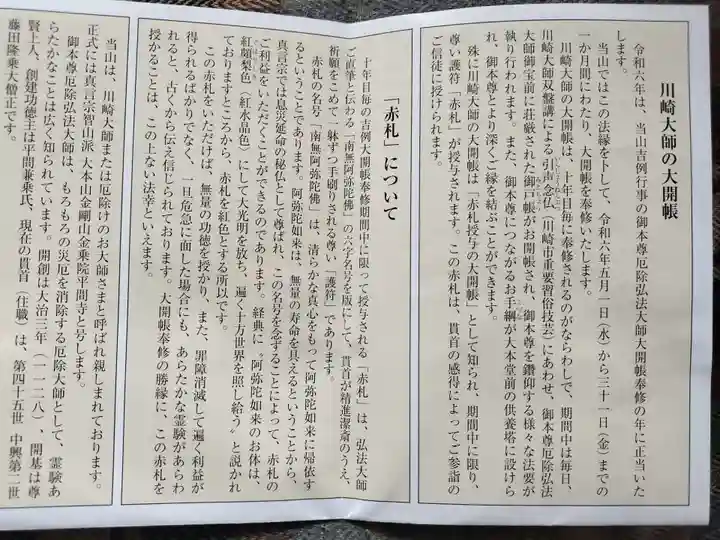 川崎大師の大開帳
令和六年は、当山吉例行事の御本尊厄除弘法大師大開帳奉修の年に正当いた
します。
当山ではこの法縁を卜して、令和六年五月一日（水）から三十一日（金）までの
一か月間にわたり、大開帳を奉修いたします。
川崎大師の大開帳は、十年目毎に奉修されるのがならわしで、期間中は毎日、
川崎大師双盤講による引声念仏（川崎市重要習俗技芸）にあわせ、御本尊厄除弘法
大師御宝前に荘厳された御戸帳がお開帳され、御本尊を鑽仰する様々な法要が
執り行われます。また、御本尊につながるお手綱が大本堂前の供養塔に設けら
れ、御本尊とより深くご縁を結ぶことができます。
殊に川崎大師の大開帳は「赤札授与の大開帳」として知られ、期間中に限り、
尊い護符「赤札」が授与されます。この赤札は、貫首の感得によってご参詣の
ご信徒に授けられます。
「赤札」について
十年目毎の吉例大開帳奉修期間中に限って授与される「赤札」は、弘法大師
ご直筆と伝わる「南無阿弥陀佛」の六字名号を版にして、貫首が精進潔斎のうえ、
祈願をこめて一躰ずつ手刷りされる尊い「護符」であります。
赤札の名号「南無阿弥陀佛」は、清らかな真心をもって阿弥陀如来に帰依す
るということであります。阿弥陀如来は、無量の寿命を具えるということから、
真言宗では息災延命の秘仏として尊ばれ、この名号を念ずることによって、赤札の
ご利益をいただくことができるのであります。経典に〝阿弥陀如来のお体は、
紅頗梨色（紅水晶色）にして大光明を放ち、遍く十方世界を照し給う〟と説かれ
ておりますところから、赤札を紅色とする所以です。
この赤札をいただけば、無量の功徳を授かり、また、罪障消滅して遍く利益が
得られるばかりでなく、一旦危急に面した場合にも、あらたかな霊験があらわ
れると、古くから伝え信じられております。大開帳奉修の勝縁に、この赤札を
授かることは、この上ない法幸といえます。
当山は、川崎大師または厄除けのお大師さまと呼ばれ親しまれております。
正式には真言宗智山派 大本山金剛山金乗院平間寺と号します。
御本尊厄除弘法大師は、もろもろの災厄を消除する厄除大師として、霊験あ
らたかなことは広く知られています。開創は大治三年（一一二八）開基は尊
賢上人、創建功徳主は平間兼乗氏、現在の貫首（住職）は、第四十五世 中興第二世
藤田隆乗大僧正です。